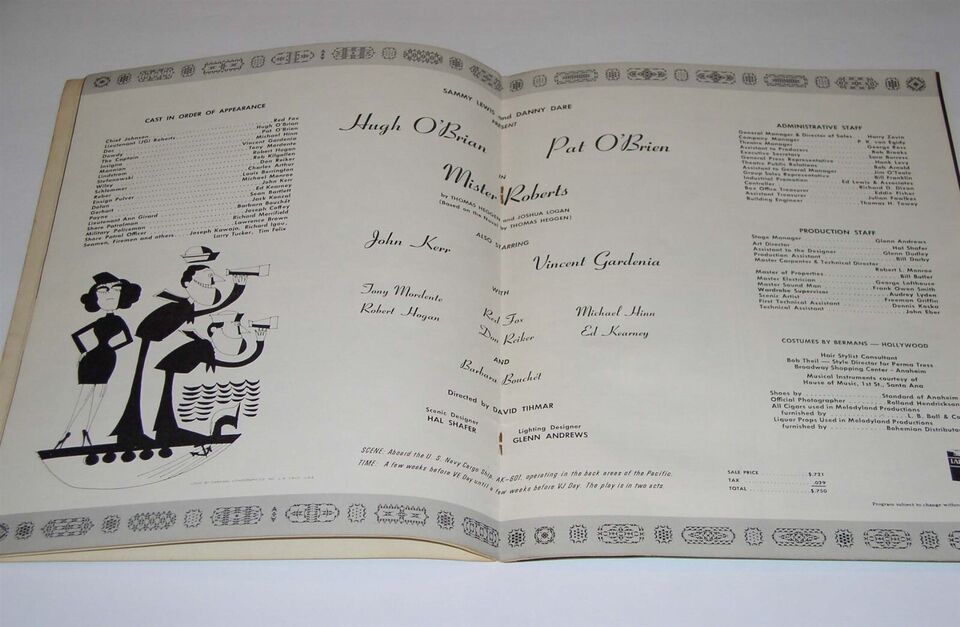 CAST IN ORDER OF APPEARANCE
Chief Johnson Red Fox
Lieutenant (JG) Roberts Hugh O'Brian
Doc Pat O'Brien
Dowdy Michael Hinn
The Captain Vincent Gardenia
Insigna Tony Mordente
Mannion Robert Hogan
Lindstrom Rob Kilgallen
Stefanowski Don Reiker
Wiley Charles Arthur
Schlemmer Louis Barrington
Reber Michael Monroe
Ensign Pulver John Kerr
Dolan Ed Kearney
Gerhart Sean Bartlett
Payne Jack Konzal
Lieutenant Ann Girard Barbara Bouchét
Shore Patrolman Joseph Coffey
Military Policeman Richard Merrifield
Shore Patrol Officer Lawrence Brown
Seamen, Firemen and others Joseph Kawaja, Richard Igou,
Larry Tucker, Tim Felix
SAMMY LEWIS and DANNY DARE
PRESENT
Hugh O'Brian
Pat O'Brien
IN
Mister Roberts
by THOMAS HEGGEN and JOSHUA LOGAN
(Based on the Novel by THOMAS HEGGEN)
ALSO STARRING
John Kerr
Vincent Gardenia
WITH
Tony Mordente Red Fox Michael Hinn
Robert Hogan Don Reiker Ed Kearney
AND
Barbara Bouchét
Directed by DAVID TIHMAR
Scenic Designer
HAL SHAFER
Lighting Designer
GLENN ANDREWS
SCENE: Aboard the U. S. Navy Cargo Ship, AK-601, operating in the back areas of the Pacific.
TIME: A few weeks before VE Day until a few weeks before VJ Day. The play is in two acts.
ADMINISTRATIVE STAFF
General Manager & Director of Sales Harry Zevin
Company Manager
Theatre Manager George Ross
Assistant to Producers Rob Brooks
Executive Secretary
General Press Representative Hank Levy
Theatre Public Relations Bob Arnold
Assistant to General Manager Jim O'Toole
Group Sales Representative Bill Franklin
Industrial Promotion Ed Lewis & Associates
Controller Richard D. Dixon
Box Office Treasurer Eddie Fisher
Assistant Treasurer Julian
Building Engineer Thomas H. Towey
PRODUCTION STAFF
Stage Manager Glenn Andrews
Art Director Hal Shafer
Assistant to the Designer Glenn Dudley
Production Assistant Bill Darby
Master Carpenter & Technical Director
Robert L. Monroe
Master of Properties Bill Butler
Master Electrician George Lofthouse
Master Sound Man Frank Owen Smith
Wardrobe Supervisor Audrey Lyden
Scenic Artist Freeman Griffin
First Technical Assistant Dennis Kasku
Technical Assistant John Eber
COSTUMES BY BERMANS — HOLLYWOOD
Hair Stylist Consultant
Bob Theil — Style Director for Perma Tress
Broadway Shopping Center - Anaheim
Musical Instruments courtesy of
House of Music, 1st St., Santa Ana
Shoes by Standard of Anaheim
Official Photographer Rolland Hendrickson
All Cigars used in Melodyland Productions
furnished by L. B. Ball & Co
Liquor Props used in Melodyland Productions
furnished by Bohemian Distribut
SALE PRICE $.721
TAX .029
TOTAL $.750
Program subject to change withou